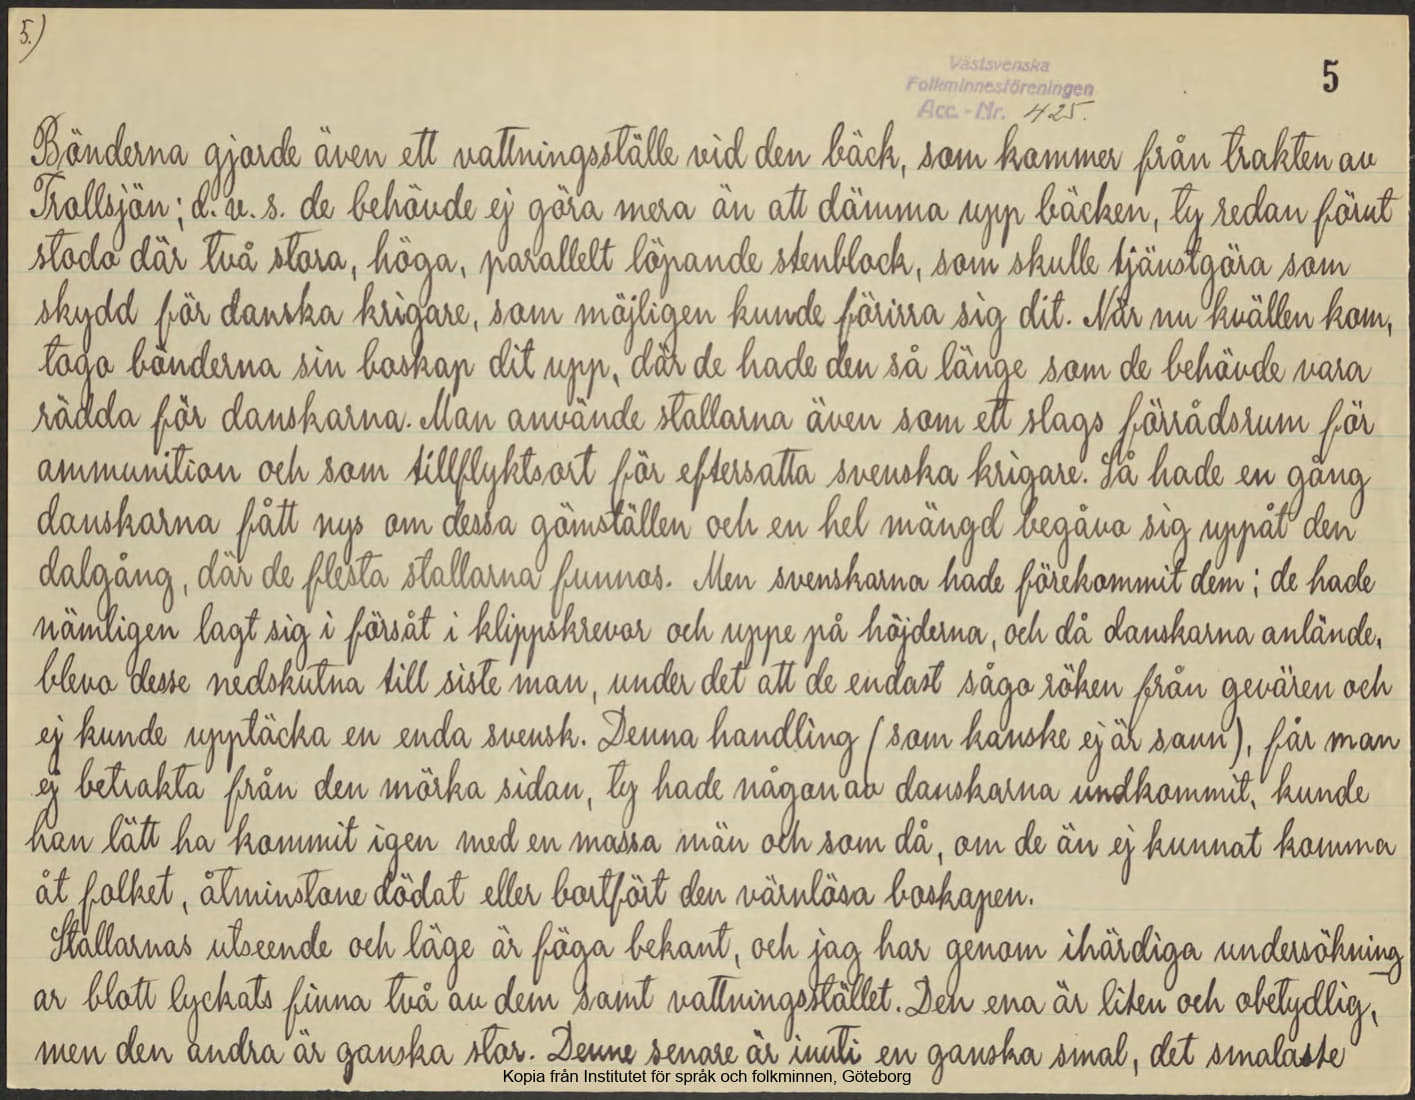 5.)
5
Västsvenska
Folkminnesföreningen
Acc.-Nr. 425.
Bönderna gjorde även ett vattningsställe vid den bäck, som kommer från trakten av
Trollsjön; d. v. s. de behövde ej göra mera än att dämma upp bäcken, ty redan förut
stodo där två stora, höga, parallelt löpande stenblock, som skulle tjänstgöra som
skydd för danska krigare, som möjligen kunde förirra sig dit. När nu kvällen kom,
togo bönderna sin boskap dit upp, där de hade den så länge som de behövde vara
rädda för danskarna. Man använde stallarna även som ett slags förrådsrum för
ammunition och som tillflyktsort för eftersatta svenska krigare. Så hade en gång
danskarna fått nys om dessa gömställen och en hel mängd begåvo sig uppåt den
dalgång, där de flesta stallarna funnos. Men svenskarna hade förekommit dem; de hade
nämligen lagt sig i försåt i klippskrevor och uppe på höjderna, och då danskarna anlände,
blevo desse nedskutna till siste man, under det att de endast sågo röken från gevären och
ej kunde upptäcka en enda svensk. Denna handling (som kanske ej är sann), får man
ej betrakta från den mörka sidan, ty hade någon av danskarna undkommit, kunde
han lätt ha kommit igen med en massa män och som då, om de än ej kunnat komma
åt folket, åtminstone dödat eller bortfört den värnlösa boskapen.
Stallarnas utseende och läge är föga bekant, och jag har genom ihärdiga undersökning
ar blott lyckats finna två av dem samt vattningsstället. Den ena är liten och obetydlig,
men den andra är ganska stor. Denne senare är inuti en ganska smal, det smalaste
Kopia från Institutet för språk och folkminnen, Göteborg